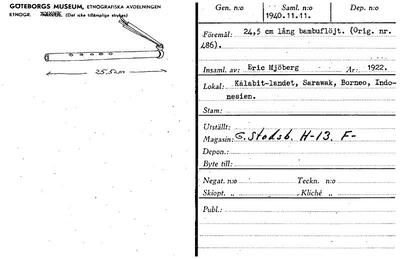 GÖTEBORGS MUSEUM, ETNOGRAFISKA AVDELNINGEN
ETNOGR. (Det icke tillämpliga strykes)
25,5cm
Gen. n:o
Saml. n:o
Dep. n:o
1940.11.11.
Föremål: 24,5 cm lång bambuflöjt. (Orig. nr.
486).
Insaml. av: Eric Mjöberg År: 1922.
Lokal: Kalabit-landet, Sarawak, Borneo, Indo-
nesien.
Stam:
Utställt:
Magasin: G. Stadsb. H-13. F-
Depon.:
Byte till:
Negat. n:o Teckn. n:o
Skiopt. „ Kliché „
Publ.: